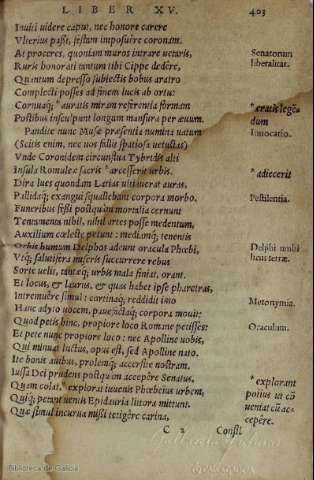 LIBER XV. 403
Inuiti uidere caput, nec honore carere
Vlterius passi, festam imposuere coronam.
At proceres, quoniam muros intrare uetaris,
Ruris honorati tantum tibi Cippe dedêre,
Quantum depresso subiectis bobus aratro
Complecti posses ad finem lucis ab ortu:
Cornuaq; * auratis miram referentia formam
Postibus insculpunt longum mansura per æuum.
Pandite nunc Musæ præsentia numina uatum
(Scitis enim, nec uos fallit spatiosa uetustas)
Vnde Coronidem circunflua Tybridis alti
Insula Romuleæ sacris * accesserit urbis.
Dira lues quondam Latias uitiauerat auras,
Pallidaq; exangui squalebant corpora morbo.
Funeribus fessi postquàm mortalia cernunt
Tentamenta nihil, nihil artes posse medentum,
Auxilium cæleste petunt: mediamq; tenentis
Orbis humum Delphos adeunt oracula Phœbi,
Vtq; salutifera miseris succurrere rebus
Sorte uelit, tantæq; urbis mala finiat, orant.
Et locus, & laurus, & quas habet ipse pharetras,
Intremuêre simul: cortinaq; reddidit imo
Hanc adyto uocem, pauefactaq; corpora mouit:
Quod petis hinc, propiore loco Romane petisses:
Et pete nunc propiore loco: nec Apolline uobis,
Qui minuat luctus, opus est, sed Apolline nato.
Ite bonis auibus, prolemq; accersite nostram.
Iussa Dei prudens postquàm accepêre Senatus,
Quam colat, * explorat iuuenis Phœbeius urbem,
Quiq; petant uentis Epidauria littora mittunt.
Quæ simul incurua missi tetigêre carina,
C 2 Consi-
Senatorum
liberalitas.
* æratis legẽ
dum
Inuocatio.
* adiecerit
Pestilentia.
Delphi umbi
licus terræ.
Metonymia.
Oraculum.
* explorant
potius ut cõ
ueniat cũ ac-
cepêre.
Biblioteca de Galicia